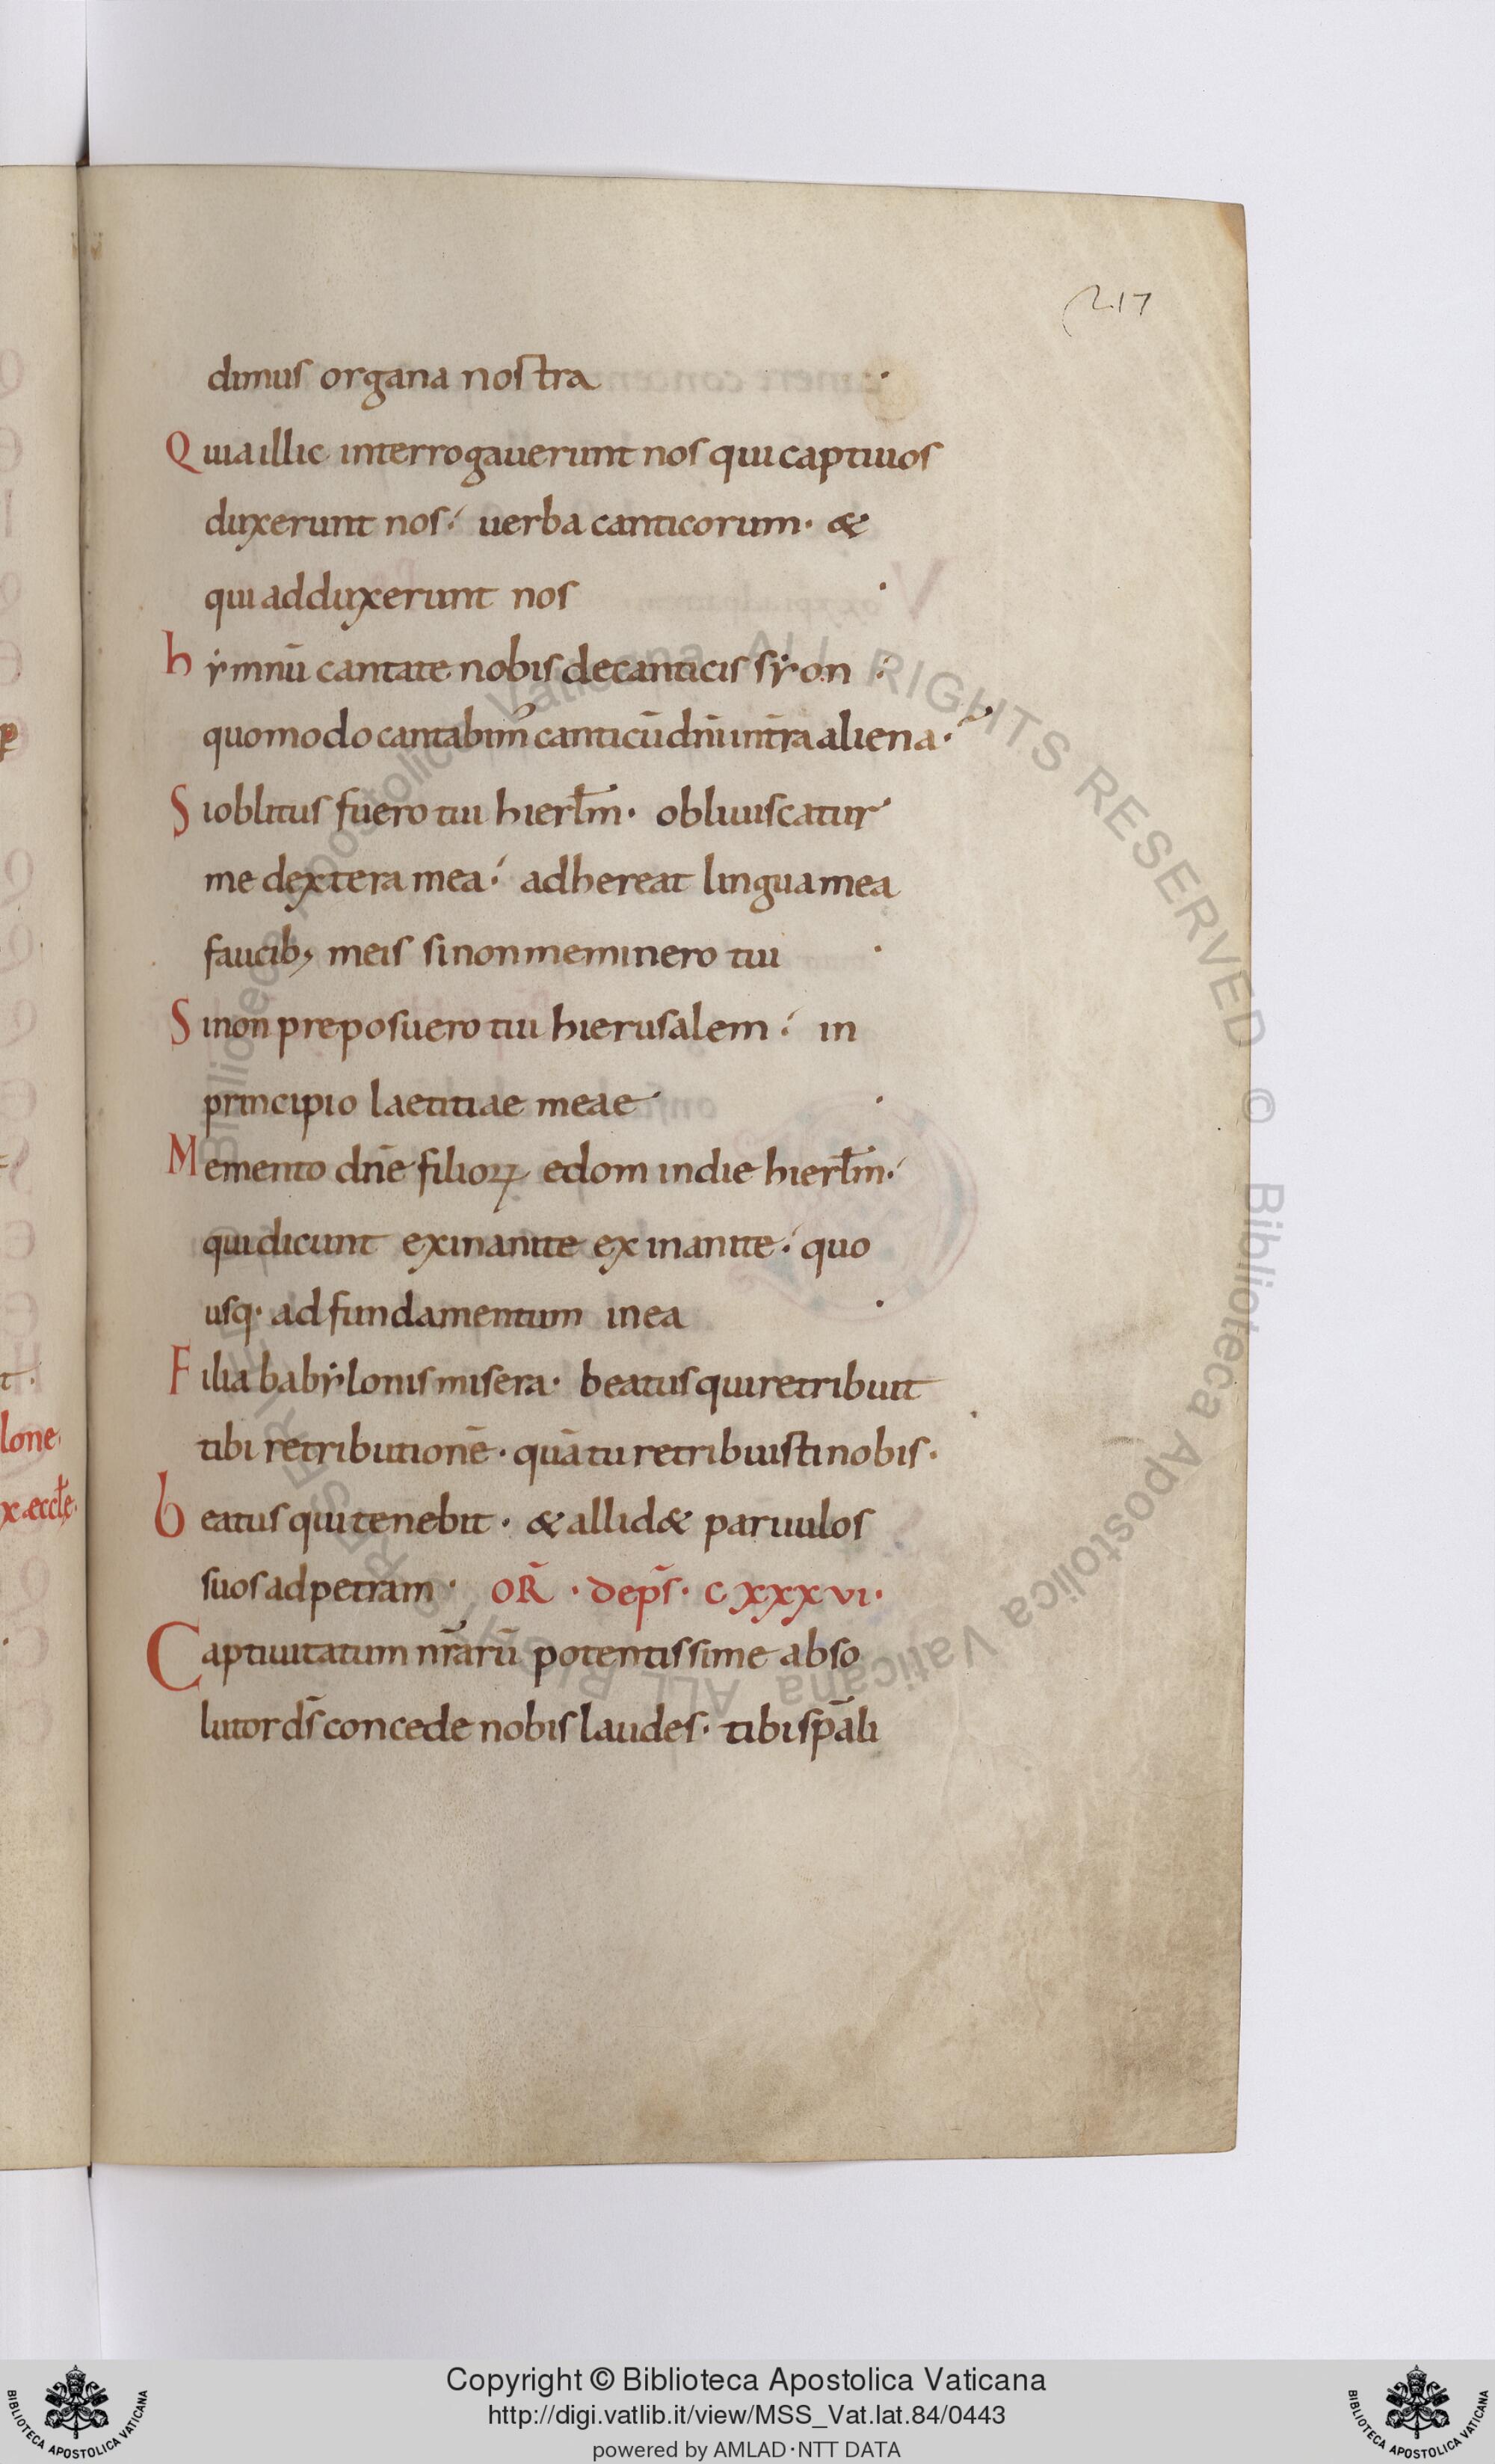 217
dimus organa nostra .
Quia illic interrogauerunt nos qui captiuos
duxerunt nos. uerba canticorum. &
qui adduxerunt nos .
hẏmnū cantate nobis de canticis sẏon .
quomodo cantabim᾽ canticū dn̄i in tr̄a aliena.
Si oblitus fuero tui hierłm. obliuiscatur
me dextera mea. adhereat lingua mea
faucib; meis si non meminero tui .
Si non preposuero tui hierusalem. in
principio laetitiae meae .
Memento dn̄e filioꝝ edom in die hierłm.
qui dicunt exinanite exinanite. quo
usq· ad fundamentum in ea .
Filia babẏlonis misera. beatus qui retribuit
tibi retributionē. quā tu retribuisti nobis.
beatus qui tenebit. & allid& paruulos
suos ad petram. OR̄. de ps̄. cxxxvi.
Captiuitatum nr̄arū potentissime abso
lutor ds̄ concede nobis laudes. tibi sp̄ali
lone
Biblioteca Apostolica Vaticana ALL RIGHTS RESERVED © Biblioteca Apostolica Vaticana ALL RIGHTS RESERVED ©
Copyright © Biblioteca Apostolica Vaticana
http://digi.vatlib.it/view/MSS_Vat.lat.84/0443
powered by AMLAD·NTT DATA
BIBLIOTECA APOSTOLICA VATICANA
BIBLIOTECA APOSTOLICA VATICANA